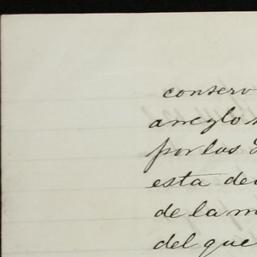 conserv
arreglo
por los
esta de
de la m
del que